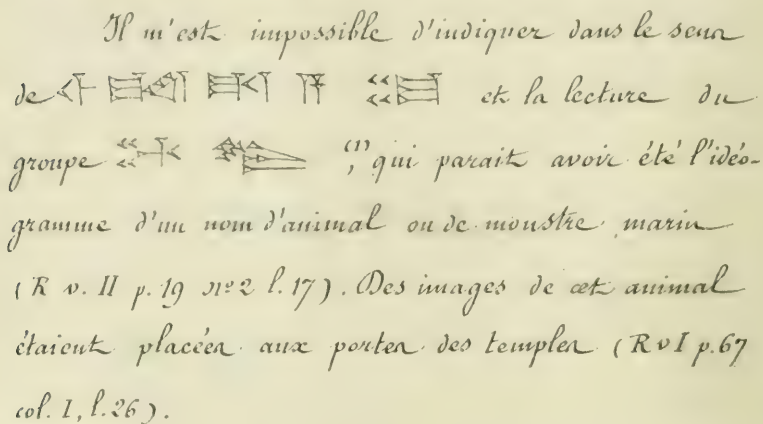 Il m'est impossible d'indiquer dans le sens
de et la lecture du
groupe (1), qui parait avoir été l'idéo-
gramme d'un nom d'animal ou de monstre marin
(R v. II p. 19 nº 2 l. 17). Des images de cet animal
étaient placées aux portes des temples (R v I p. 67
col. I, l. 26).